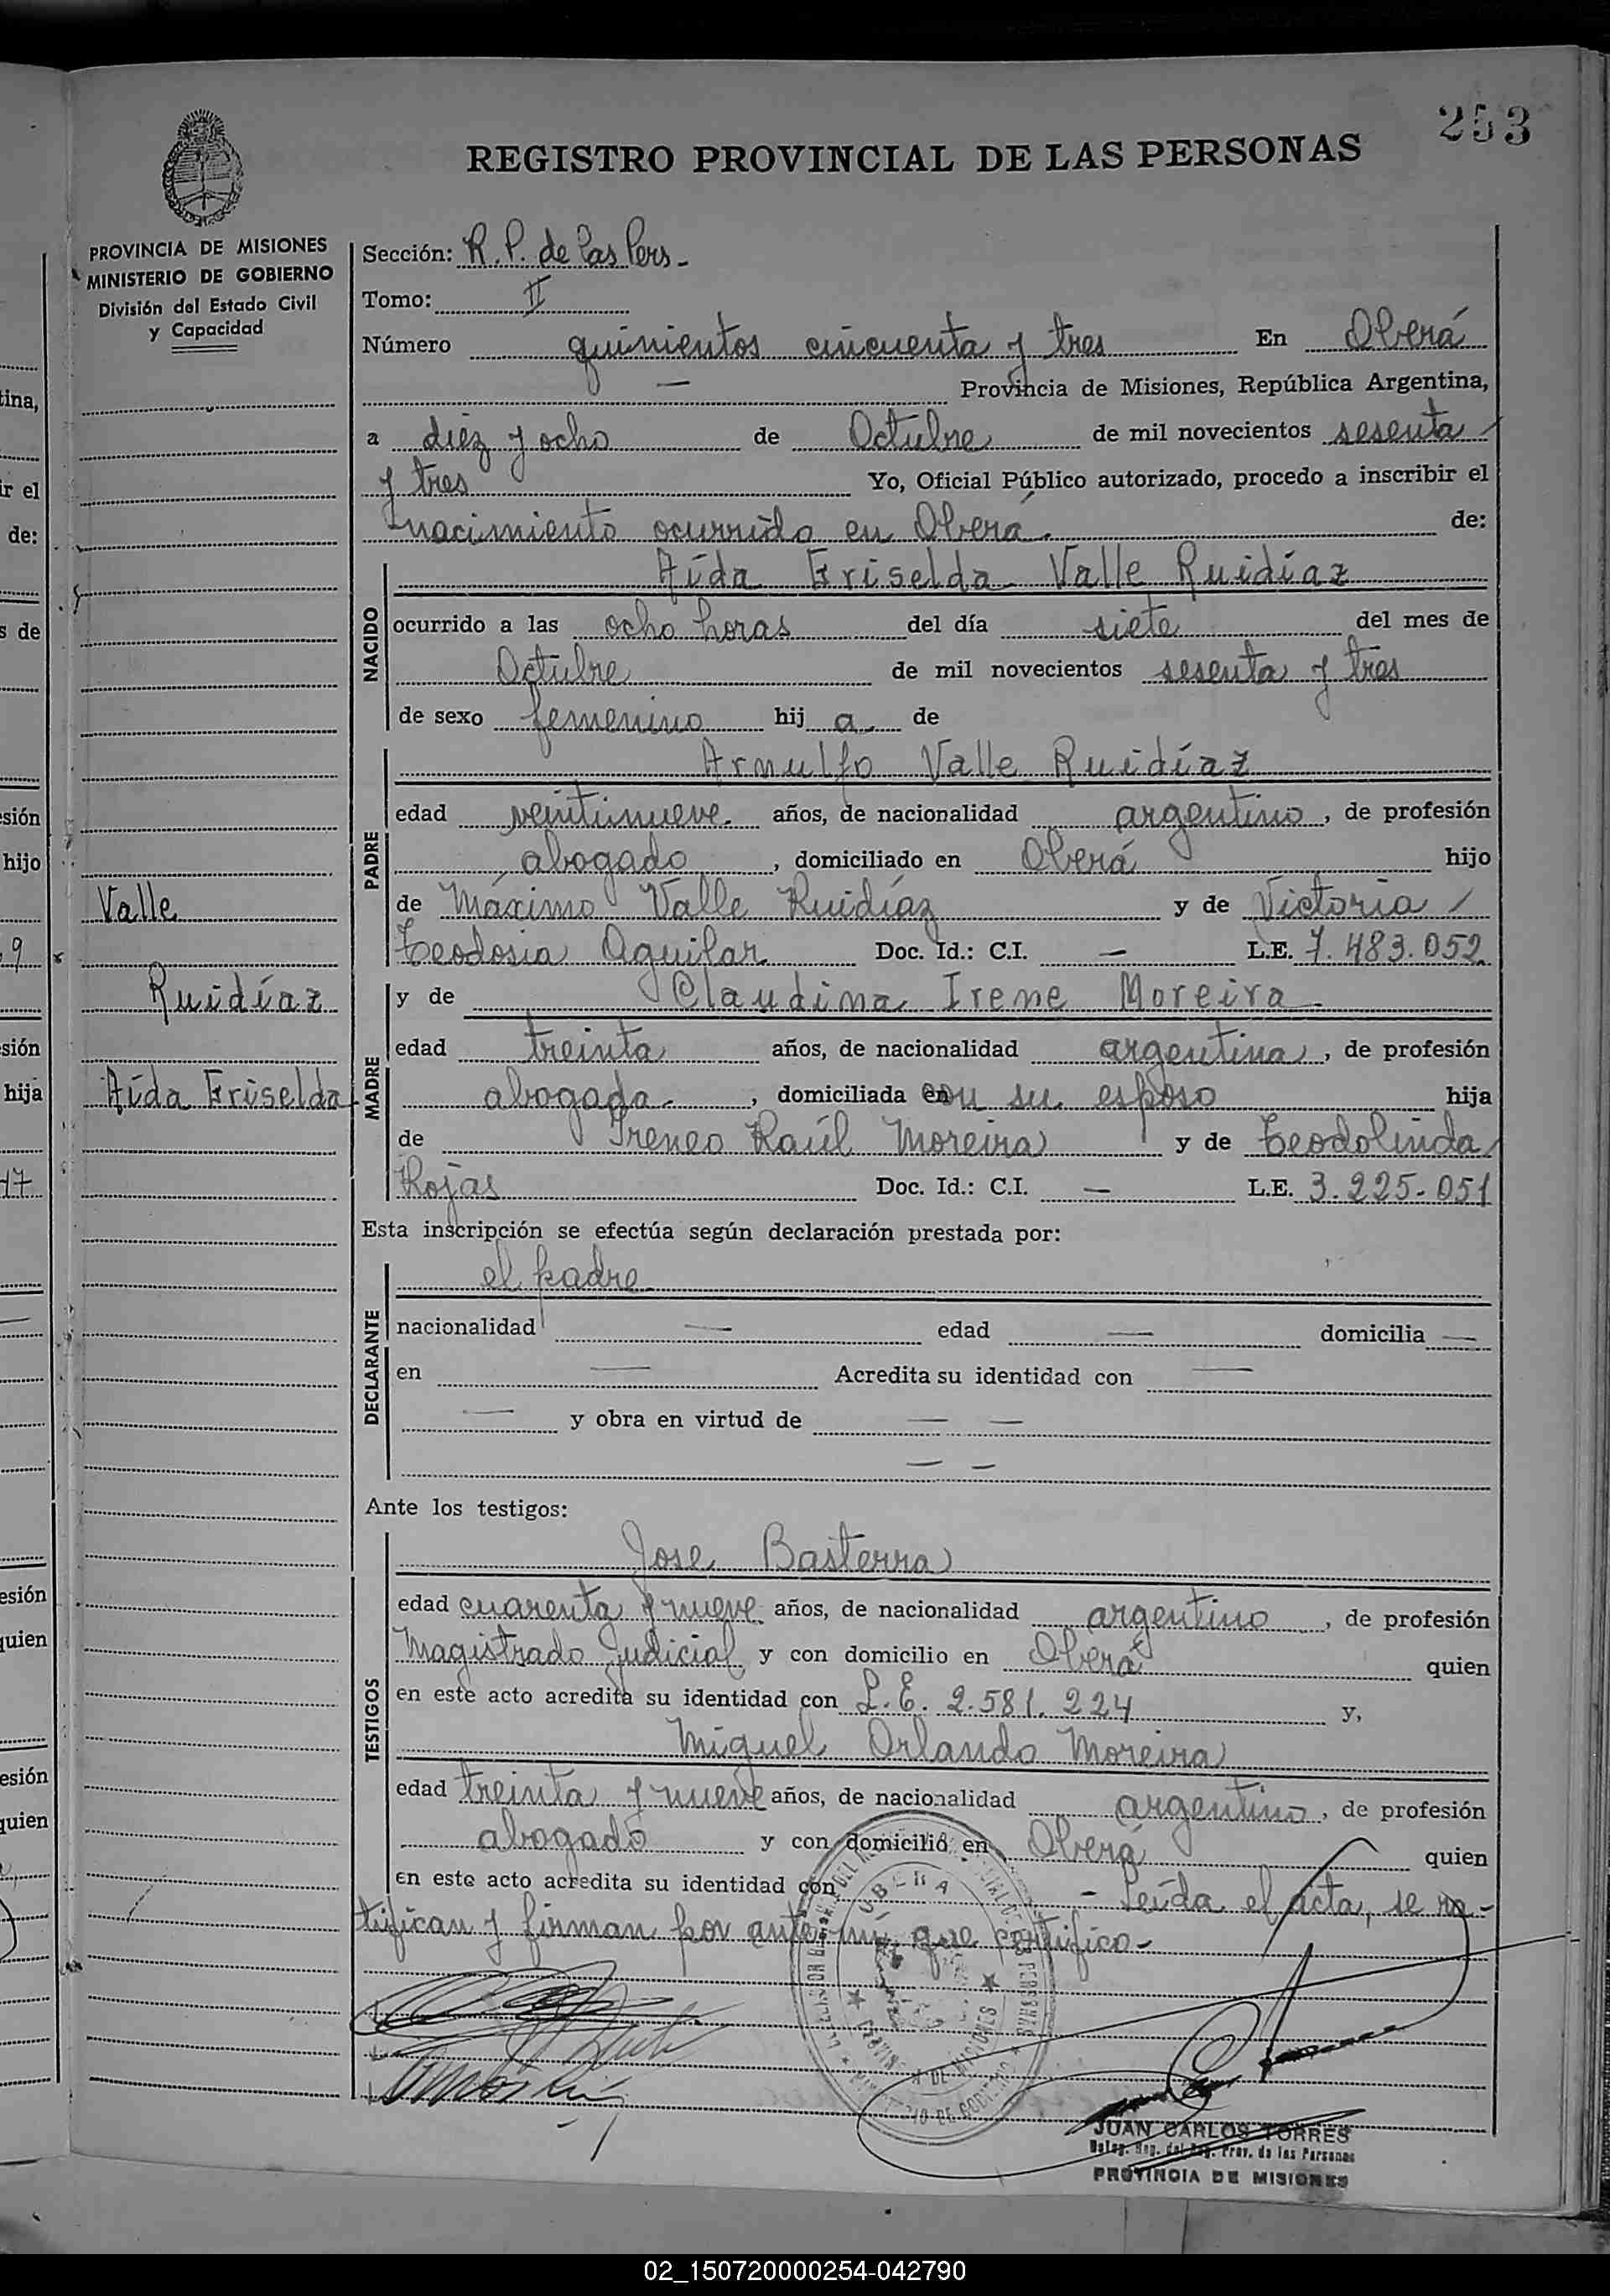 253
REGISTRO PROVINCIAL DE LAS PERSONAS
PROVINCIA DE MISIONES
MINISTERIO DE GOBIERNO
División del Estado Civil
y Capacidad
Sección: R. P. de las Pers -
Tomo: II
Número quinientos cincuenta y tres En Oberá
— Provincia de Misiones, República Argentina,
a diez y ocho de Octubre de mil novecientos sesenta
y tres Yo, Oficial Público autorizado, procedo a inscribir el
nacimiento ocurrido en Oberá. de:
NACIDO
Aída Griselda Valle Ruidíaz
ocurrido a las ocho horas del día siete del mes de
Octubre de mil novecientos sesenta y tres
de sexo femenino hij a de
PADRE
Arnulfo Valle Ruidíaz
edad veintinueve años, de nacionalidad argentino, de profesión
abogado, domiciliado en Oberá hijo
de Máximo Valle Ruidíaz y de Victoria
Teodosia Aguilar Doc. Id.: C.I. — L.E. 7.483.052
Valle
Ruidíaz
Aída Griselda
MADRE
y de Claudina Irene Moreira
edad treinta años, de nacionalidad argentina, de profesión
abogada, domiciliada con su esposo hija
de Ireneo Raúl Moreira y de Teodolinda
Rojas Doc. Id.: C.I. — L.E. 3.225.051
Esta inscripción se efectúa según declaración prestada por:
DECLARANTE
el padre
nacionalidad — edad — domicilia —
en — Acredita su identidad con —
— y obra en virtud de — —
— —
Ante los testigos:
TESTIGOS
Jose Basterra
edad cuarenta y nueve años, de nacionalidad argentino, de profesión
Magistrado Judicial y con domicilio en Oberá quien
en este acto acredita su identidad con L.E. 2.581.224 y,
Miguel Orlando Moreira
edad treinta y nueve años, de nacionalidad argentino, de profesión
abogado y con domicilio en Oberá quien
en este acto acredita su identidad con - Leída el acta, se ra-
tifican y firman por ante mi, que certifico -
JUAN CARLOS TORRES
Deleg. Reg. del Reg. Prov. de las Personas
PROVINCIA DE MISIONES
02_150720000254-042790